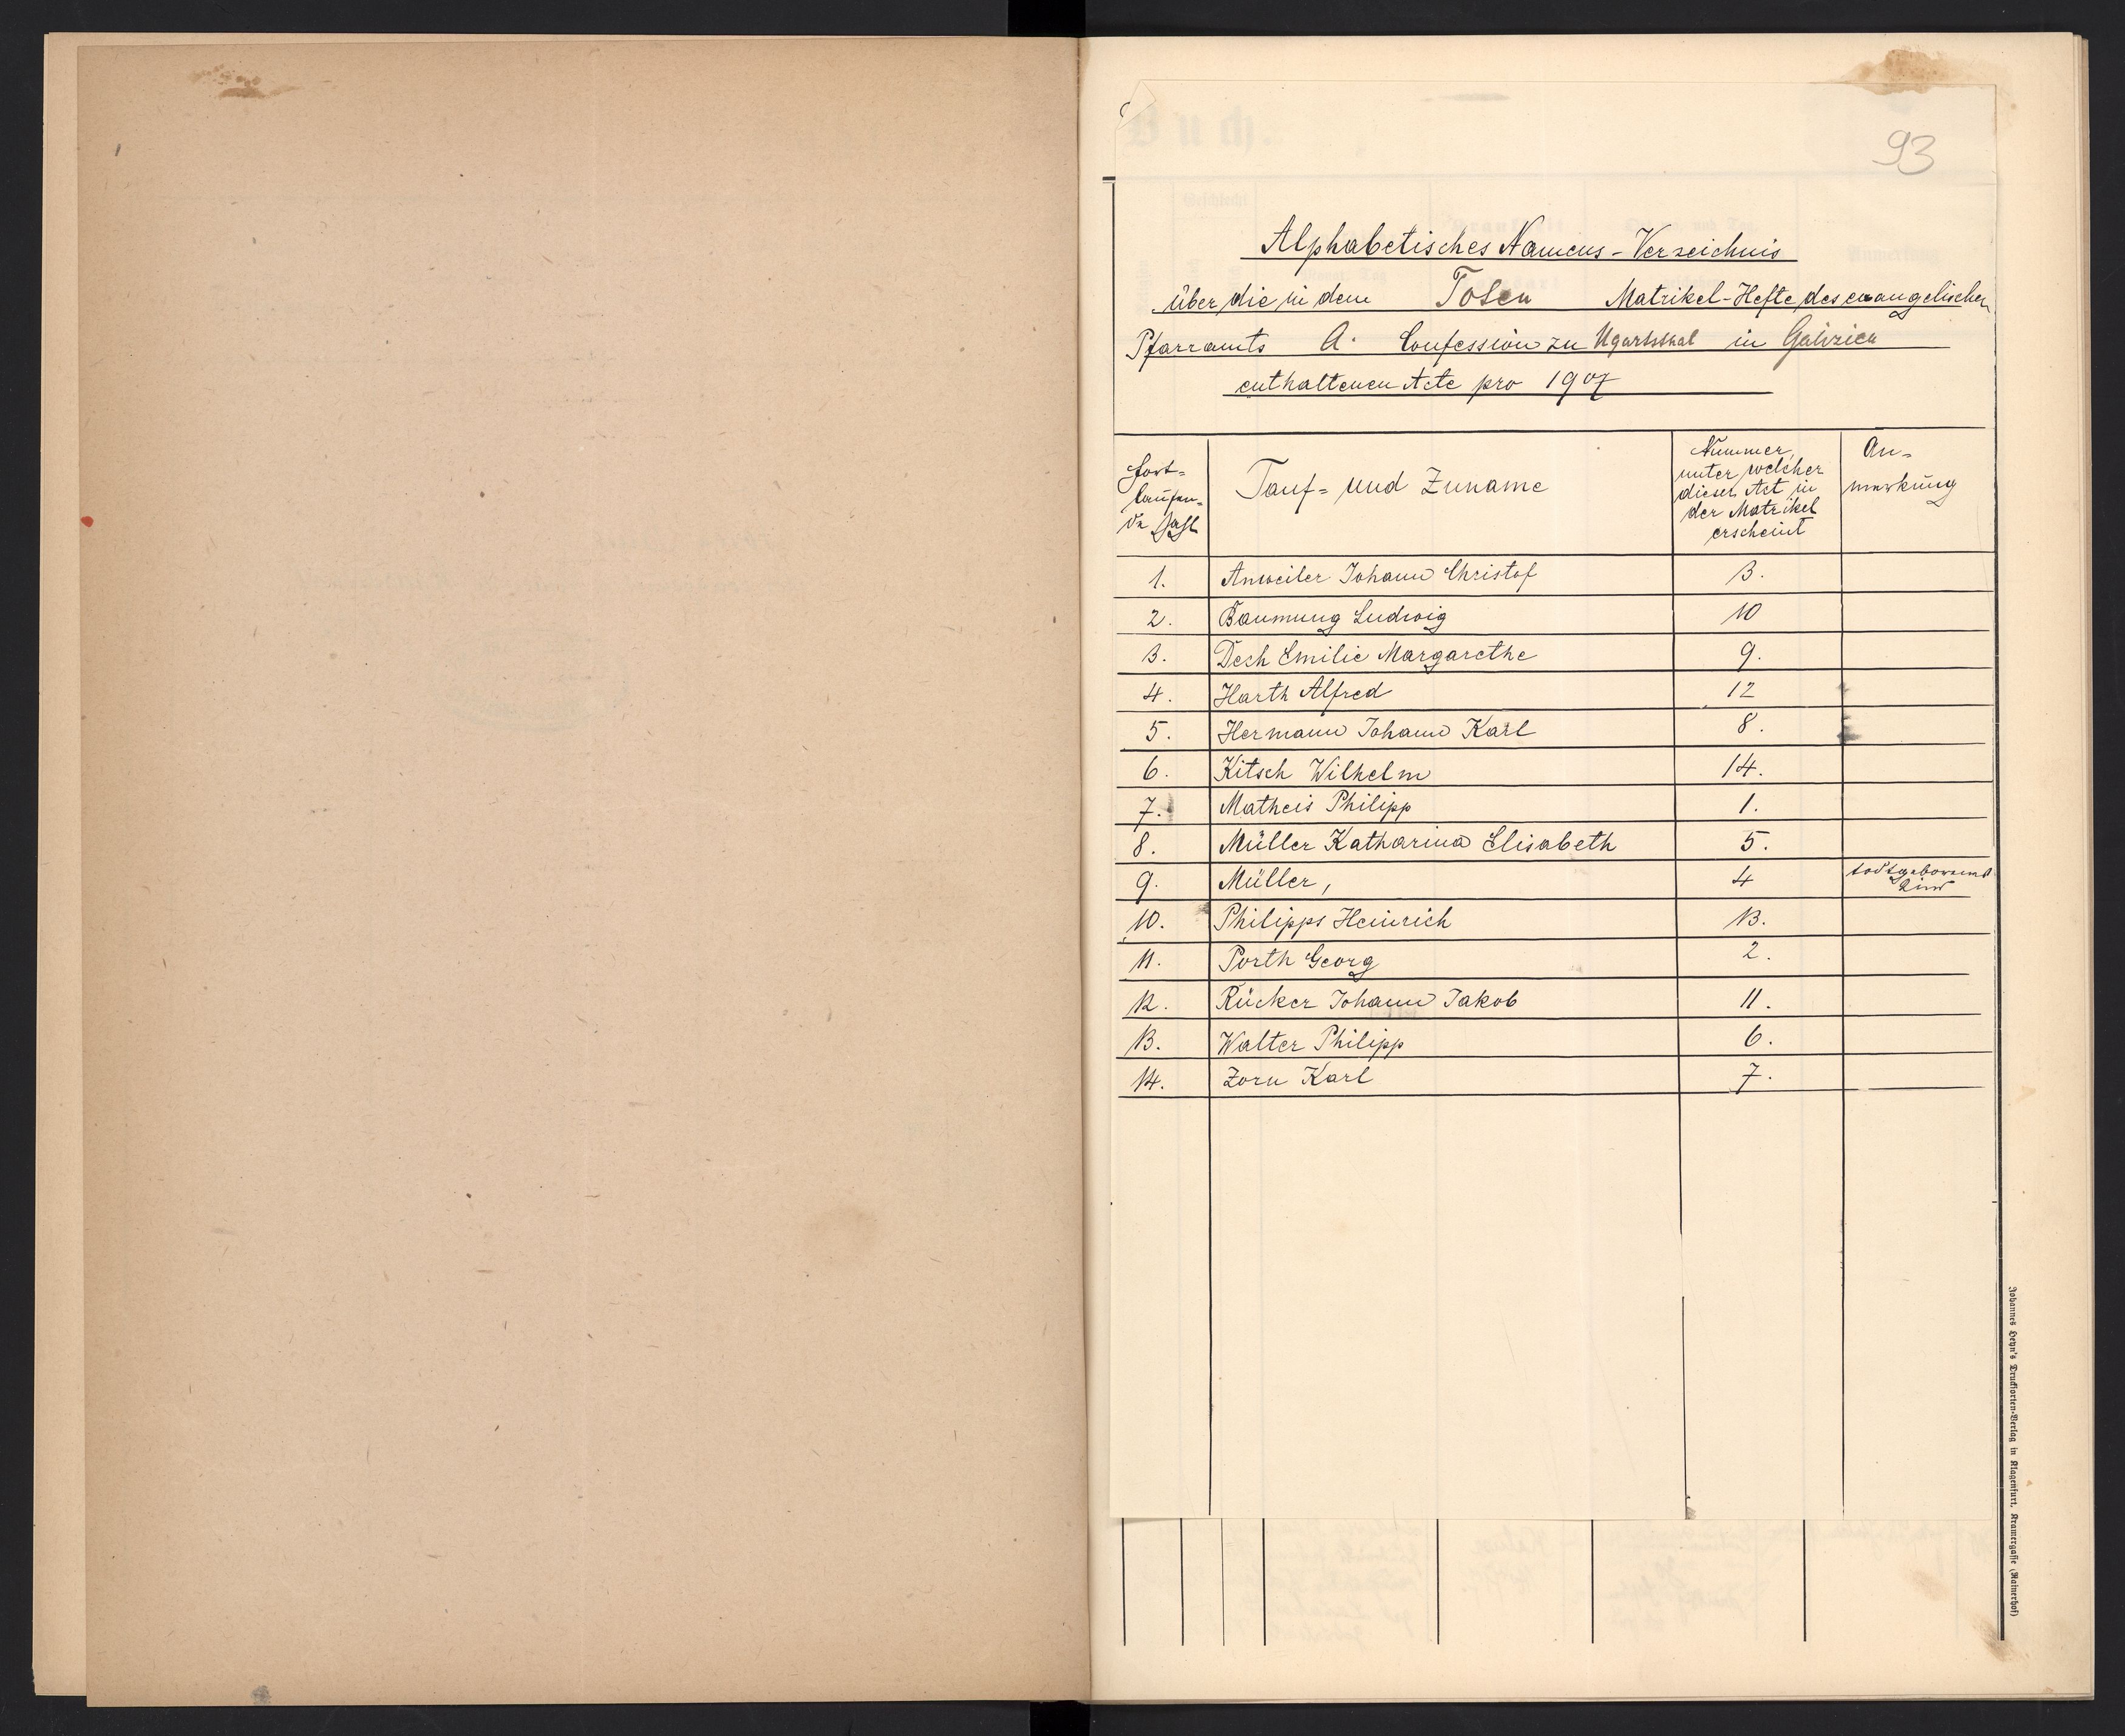 93
Alphabetisches Namens-Verzeichnis
über die in dem Toten Matrikel-Hefte des evangelischen
Pfarramts A. Confession zu Ugartsthal in Galizien
enthaltenen Acte pro 1907
Fort-
laufen-
de Zahl
Tauf- und Zuname
Nummer,
unter welcher
dieser Act in
der Matrikel
erscheint
An-
merkung
1. Anweiler Johann Christof 3.
2. Baumung Ludwig 10
3. Desh Emilie Margarethe 9.
4. Harth Alfred 12
5. Hermann Johann Karl 8.
6. Kitsch Wilhelm 14.
7. Matheis Philipp 1.
8. Müller Katharina Elisabeth 5.
9. Müller, 4 todtgeborenes
Kind
10. Philipps Heinrich 13.
11. Porth Georg 2.
12. Rücker Johann Jakob 11.
13. Walter Philipp 6.
14. Zorn Karl 7.
Johannes Heyn's Drucksorten-Verlag in Klagenfurt, Kramergasse (Rainerhof)